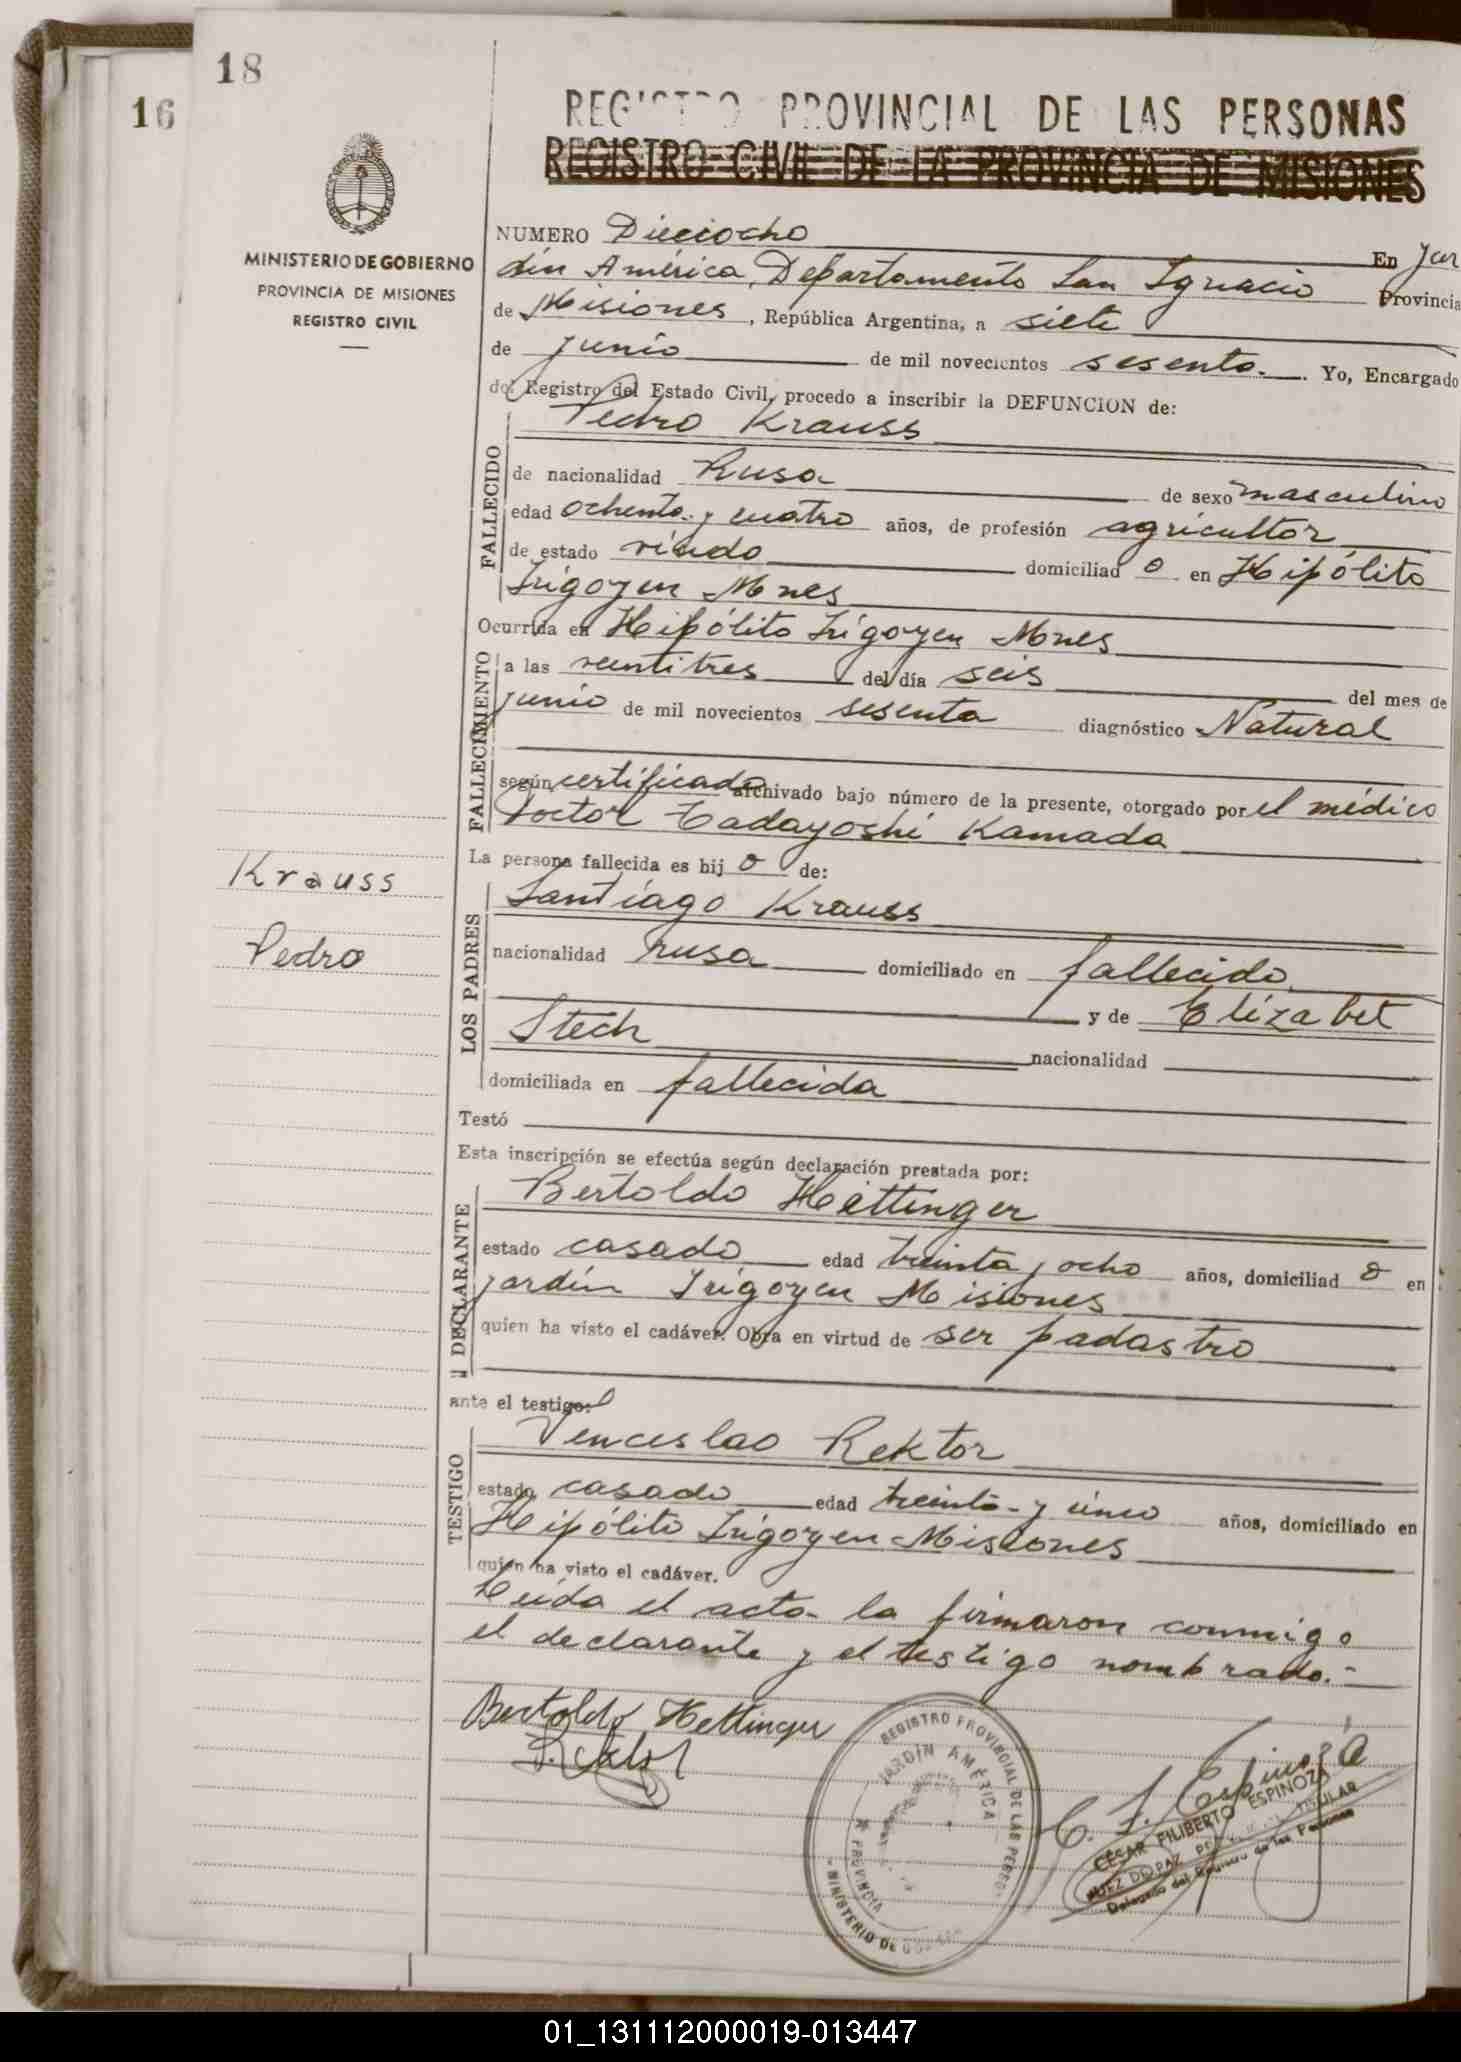 18
16
REGISTRO PROVINCIAL DE LAS PERSONAS
REGISTRO CIVIL DE LA PROVINCIA DE MISIONES
MINISTERIO DE GOBIERNO
PROVINCIA DE MISIONES
REGISTRO CIVIL
NUMERO Dieciocho En Jar
dín América, Departamento San Ignacio Provincia
de Misiones, República Argentina, a siete
de junio de mil novecientos sesenta. Yo, Encargado
del Registro del Estado Civil, procedo a inscribir la DEFUNCION de:
Pedro Krauss
FALLECIDO
de nacionalidad Rusa de sexo masculino
edad ochenta y cuatro años, de profesión agricultor
de estado viudo domiciliad o en Hipólito
Irigoyen Mnes
Ocurrida en Hipólito Irigoyen Mnes
FALLECIMIENTO
a las veintitres del día seis del mes de
junio de mil novecientos sesenta diagnóstico Natural
según certificado archivado bajo número de la presente, otorgado por el médico
Doctor Tadayoshi Kamada
La persona fallecida es hij o de:
Krauss
Pedro
LOS PADRES
Santiago Krauss
nacionalidad rusa domiciliado en fallecido
y de Elizabet
Stech nacionalidad
domiciliada en fallecida
Testó
Esta inscripción se efectúa según declaración prestada por:
DECLARANTE
Bertoldo Hettinger
estado casado edad treinta y ocho años, domiciliad o en
jardín Irigoyen Misiones
quien ha visto el cadáver. Obra en virtud de ser padastro
ante el testigo:
TESTIGO
Venceslao Rektor
estado casado edad treinta y cinco años, domiciliado en
Hipólito Irigoyen Misiones
quien ha visto el cadáver.
Leída el acta la firmaron conmigo
el declarante y el testigo nombrado.-
Bertoldo Hettinger
REGISTRO PROVINCIAL DE LAS PERSO
JARDÍN AMÉRICA
PROVINCIA
MINISTERIO DE
C. F. Espinoza
CÉSAR FILIBERTO ESPINOZA
JUEZ DE PAZ TITULAR
Delegado del Registro de las Personas
01_131112000019-013447